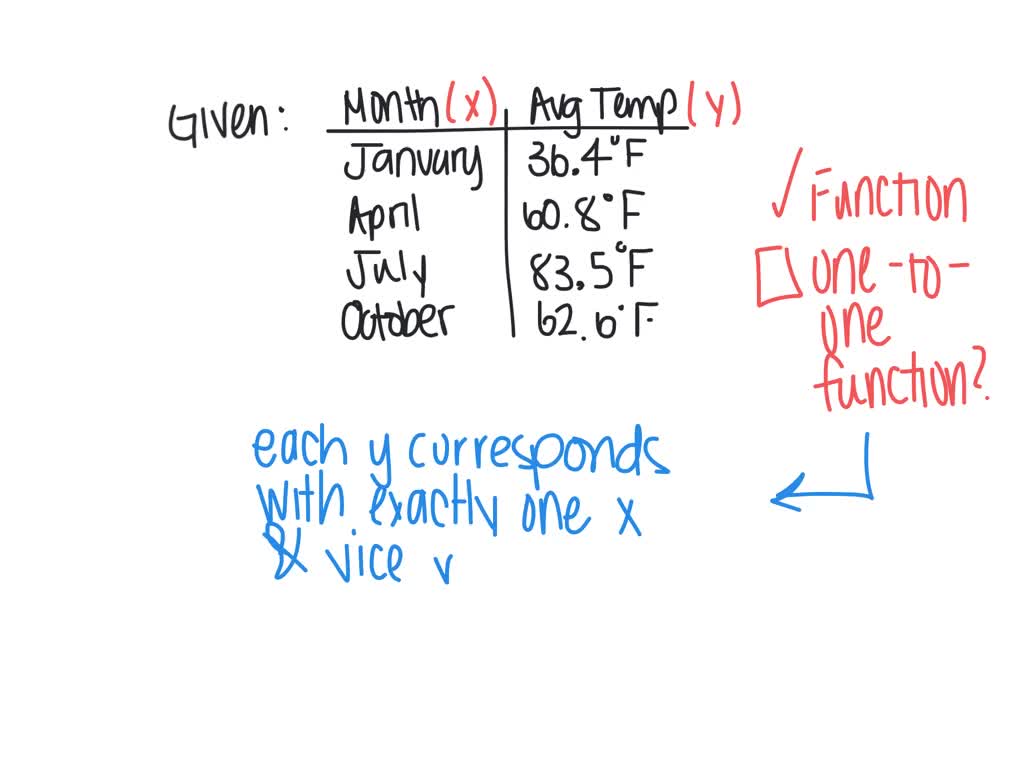 Given:
Month (x) Avg Temp (y)
January 36.4°F
April 60.8°F
July 83.5°F
October 62.6°F
✓ Function
□ one-to-
one
function?
each y corresponds
with exactly one x
& vice v